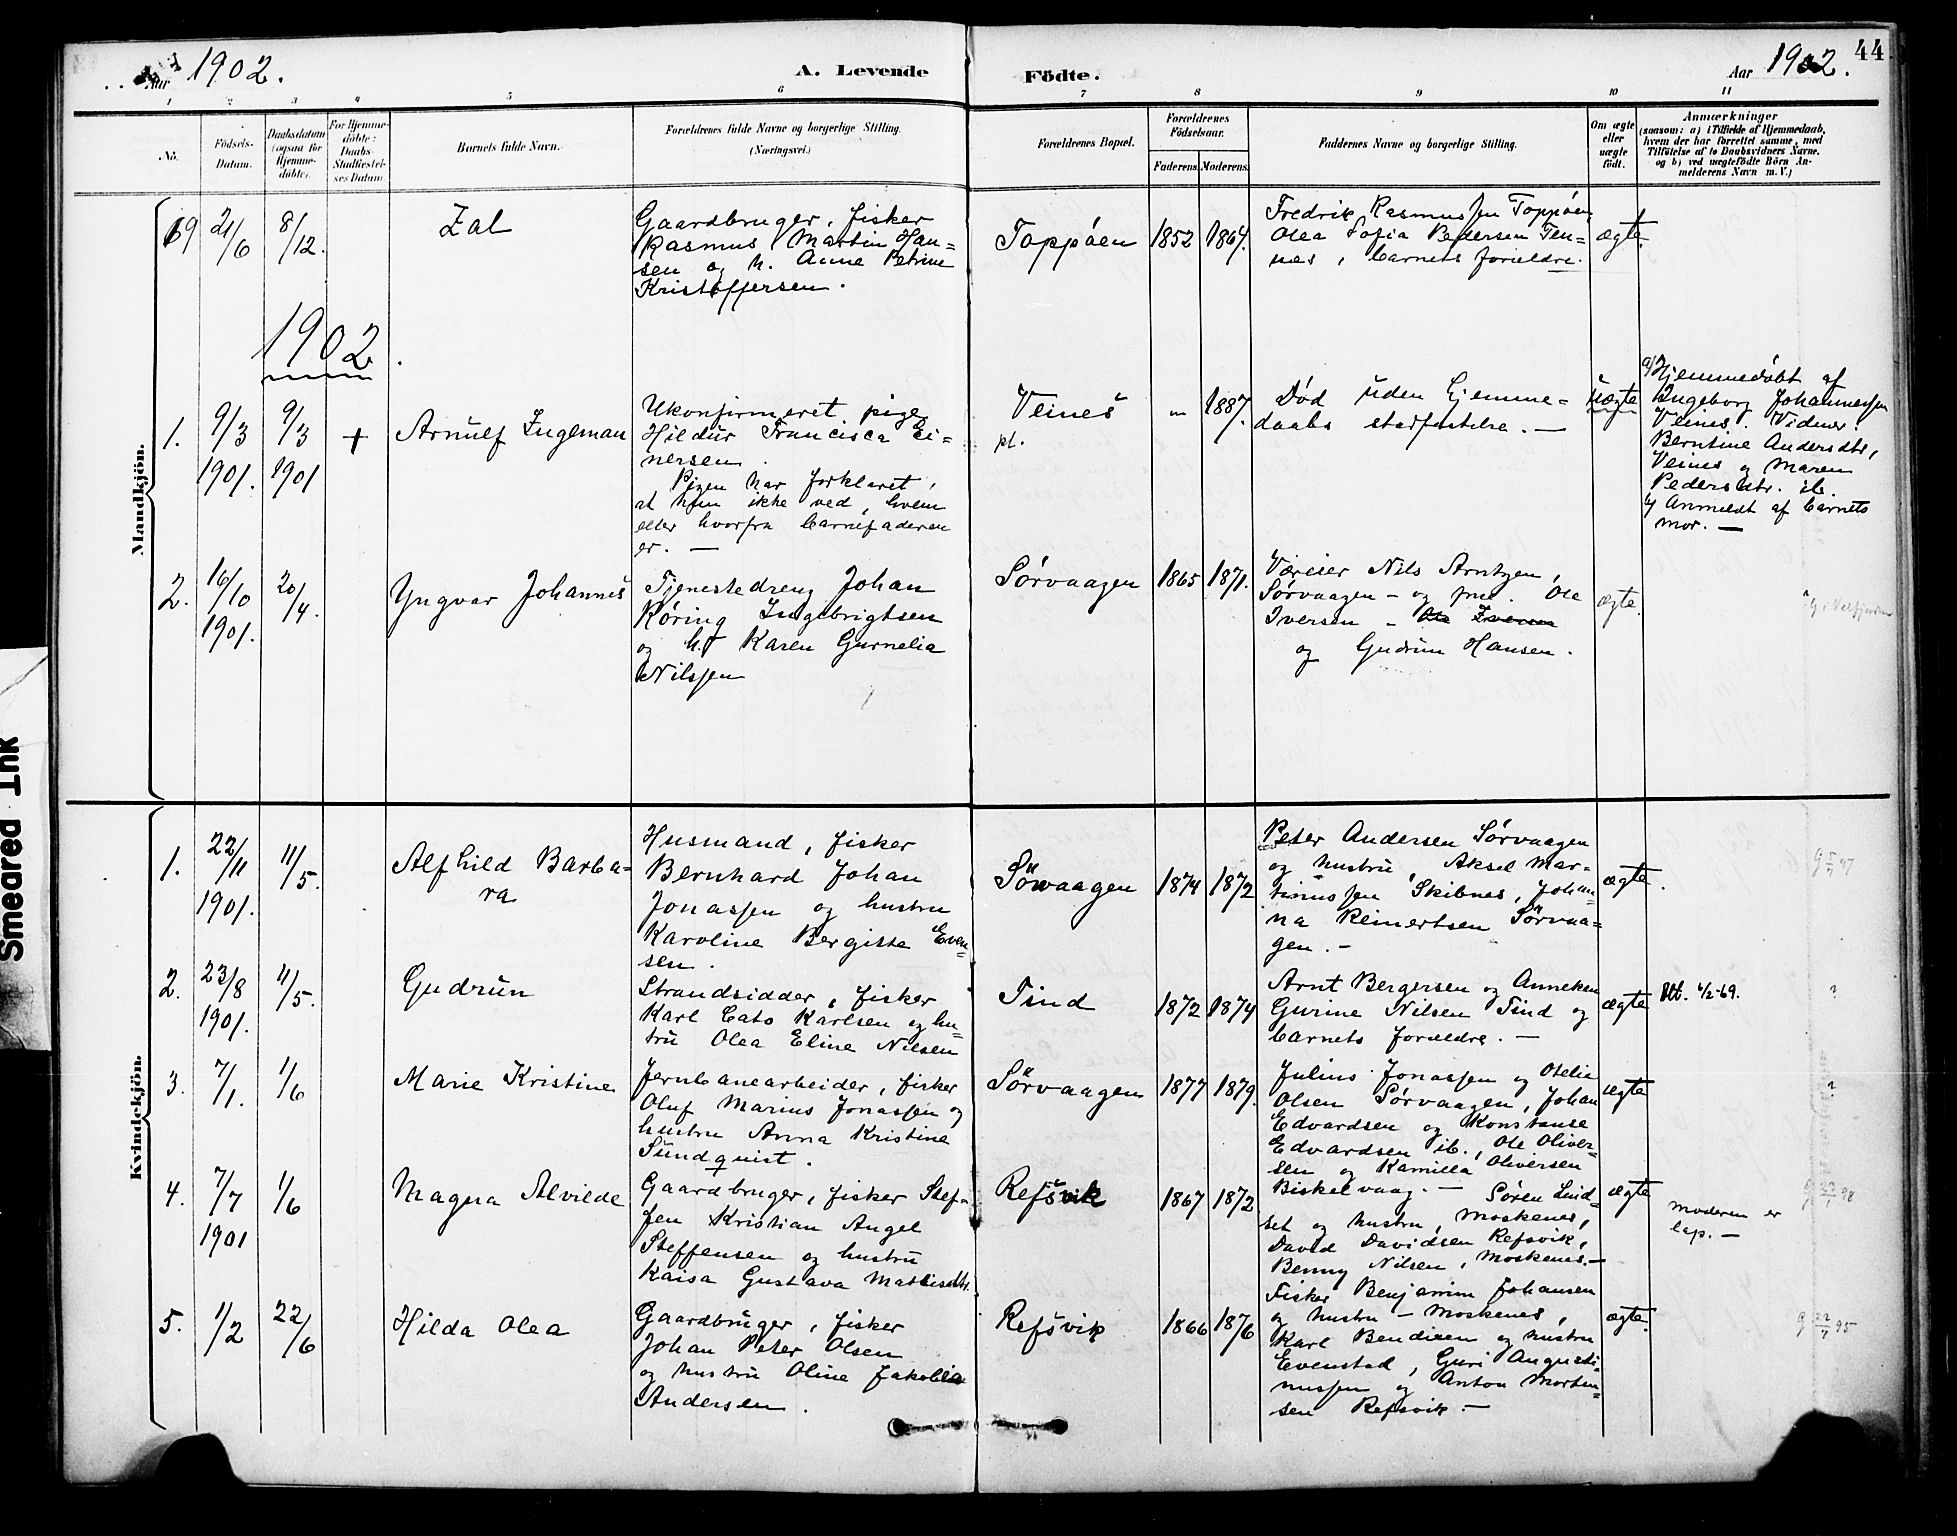 Aar 1902.
A. Levende Födte.
Aar 1902.
44
1 2 3 4 5 6 7 8 9 10 11
No.
Födsels-
Datum.
Daabsdatum
(ogsaa for
Hjemme-
döbte).
For Hjemme-
döbte:
Daabs-
Stadfæstel-
ses Datum.
Barnets fulde Navn.
Forældrenes fulde Navne og borgerlige Stilling.
(Næringsvei.)
Forældrenes Bopæl.
Forældrenes
Födselsaar.
Faderens. Moderens.
Faddernes Navne og borgerlige Stilling.
Om ægte
eller
uægte
født.
Anmærkninger
(saasom: a) i Tilfælde af Hjemmedaab,
hvem der har forrettet samme, med
Tilföielse af to Daabsvidners Navne.
og b) ved uægtefödte Börn An-
melderens Navn m. V.)
Mandkjön.
19 21/6 8/12.
Zal
Gaardbruger, fisker
Rasmus Martin Han-
sen og h. Anne Petrine
Kristoffersen.
Toppöen
1852 1864.
Fredrik Rasmussen Toppöen,
Olea Sofia Pedersen Ten-
nes, barnets forældre.
ægte.
1902.
1.
9/3
1901.
9/3
1901
+
Arnulf Ingeman
Ukonfirmeret pige
Hildur Francisca Ei-
nersen.
Pigen har forklaret,
at hun ikke ved, hvem
eller hvorfra barnefaderen
er. —
Veines
pl.
— 1887.
Död uden hjemme-
daabs stadfæstelse. —
uægte
a) Hjemmedöbt af
Ingeborg Johannessen
Veines. Vidner:
Berntine Andersdtr,
Veines og Maren
Pedersdtr. ib.
b) Anmeldt af barnets
mor. —
2.
16/10
1901.
20/4.
Yngvar Johannes
Tjenestedreng Johan
Röring Ingebrigtsen
og h. Karen Gurnelia
Nilssen
Sörvaagen
1865 1871.
Væreier Nils Arntzen,
Sörvaagen — og frue. Ole
Iversen — Ole Iversen
og Gudrun Hansen.
ægte.
Kvindekjön.
1.
22/11
1901.
11/5.
Alfhild Barba-
ra
Husmand, fisker
Bernhard Johan
Jonassen og hustru
Karoline Bergitte Even-
sen.
Sörvaagen
1874 1872
Peter Andersen Sörvaagen
og hustru, Aksel Mar-
tinussen Skibnes, Johan-
na Reinertsen Sörvaa-
gen. —
ægte.
2.
23/8
1901.
11/5.
Gudrun
Strandsidder, fisker
Karl Cato Karlsen og hu-
stru Olea Eline Nilsen
Tind
1872 1874
Arnt Bergersen og Anneken
Gurine Nilsen Tind og
barnets forældre. —
ægte
Utt. 4/2-69.
?
3.
7/1.
1/6
Marie Kristine
Jernbanearbeider, fisker
Oluf Marius Jonassen og
hustru Anna Kristine
Sundquist.
Sörvaagen
1877 1879.
Julius Jonassen og Otelie
Olsen Sörvaagen, Johan
Edvardsen og Konstanse
Edvardsen ib., Ole Oliver-
sen og Kamilla Oliversen
Biskelvaag. —
ægte
?
4.
7/7
1901
1/6
Magna Alvilde
Gaardbruger, fisker Stef-
fen Kristian Angel
Steffensen og hustru
Kaisa Gustava Mathisdtr.
Refsvik
1867 1872
Sören Lind-
set og hustru, Moskenes,
David Davidsen Refsvik,
Benny Nilsen, Moskenes. —
ægte
Moderen er
lap. —
5.
1/2
22/6
Hilda Olea
Gaardbruger, fisker
Johan Peter Olsen
og hustru Oline Jakobia
Andersen.
Refsvik
1866 1876
Fisker Benjamin Johansen
og hustru — Moskenes,
Karl Bendixen og hustru
Evenstad, Guri Augusti-
nussen og Anton Morten-
sen Refsvik —
ægte.
g 22/7 95
Smeared Ink